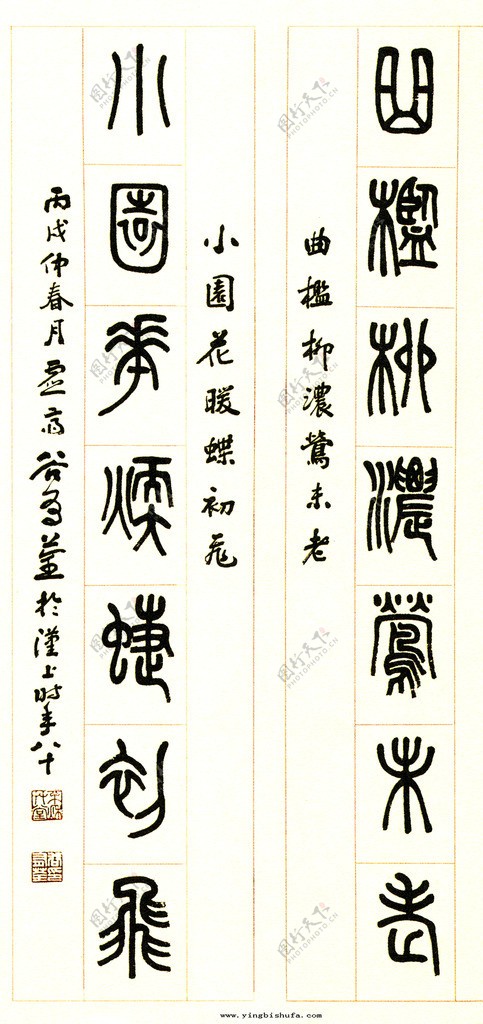 曲檻柳濃鶯未老
曲檻柳濃鶯未老
小園花暖蝶初飛
小園花煗蝶初飛
丙戌仲春月
於漢上時年八十
www.yingbishufa.com
图行天下
PHOTOPHOTO.CN